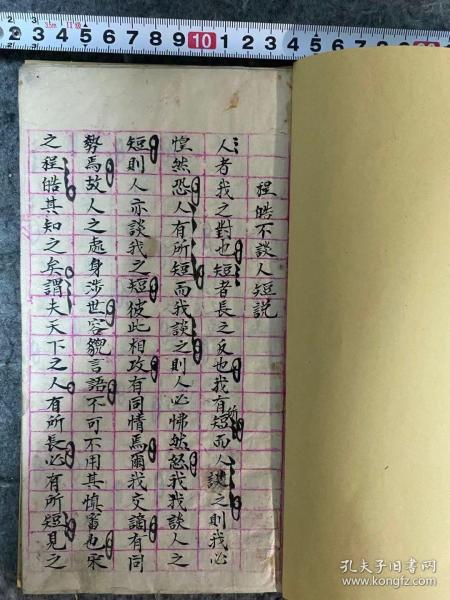 程皓不談人短説
人者我之對也短者長之反也我有所短而人談之則我必
惶然恐人有所短而我談之則人必怫然怒我我談人之
短則人亦談我之短彼此相攻有同情焉爾我交謫有同
勢焉故人之處身涉世容貌言語不可不用其慎密也宋
之程皓其知之矣謂夫天下之人有所長必有所短見之
孔夫子旧书网
www.kongfz.com